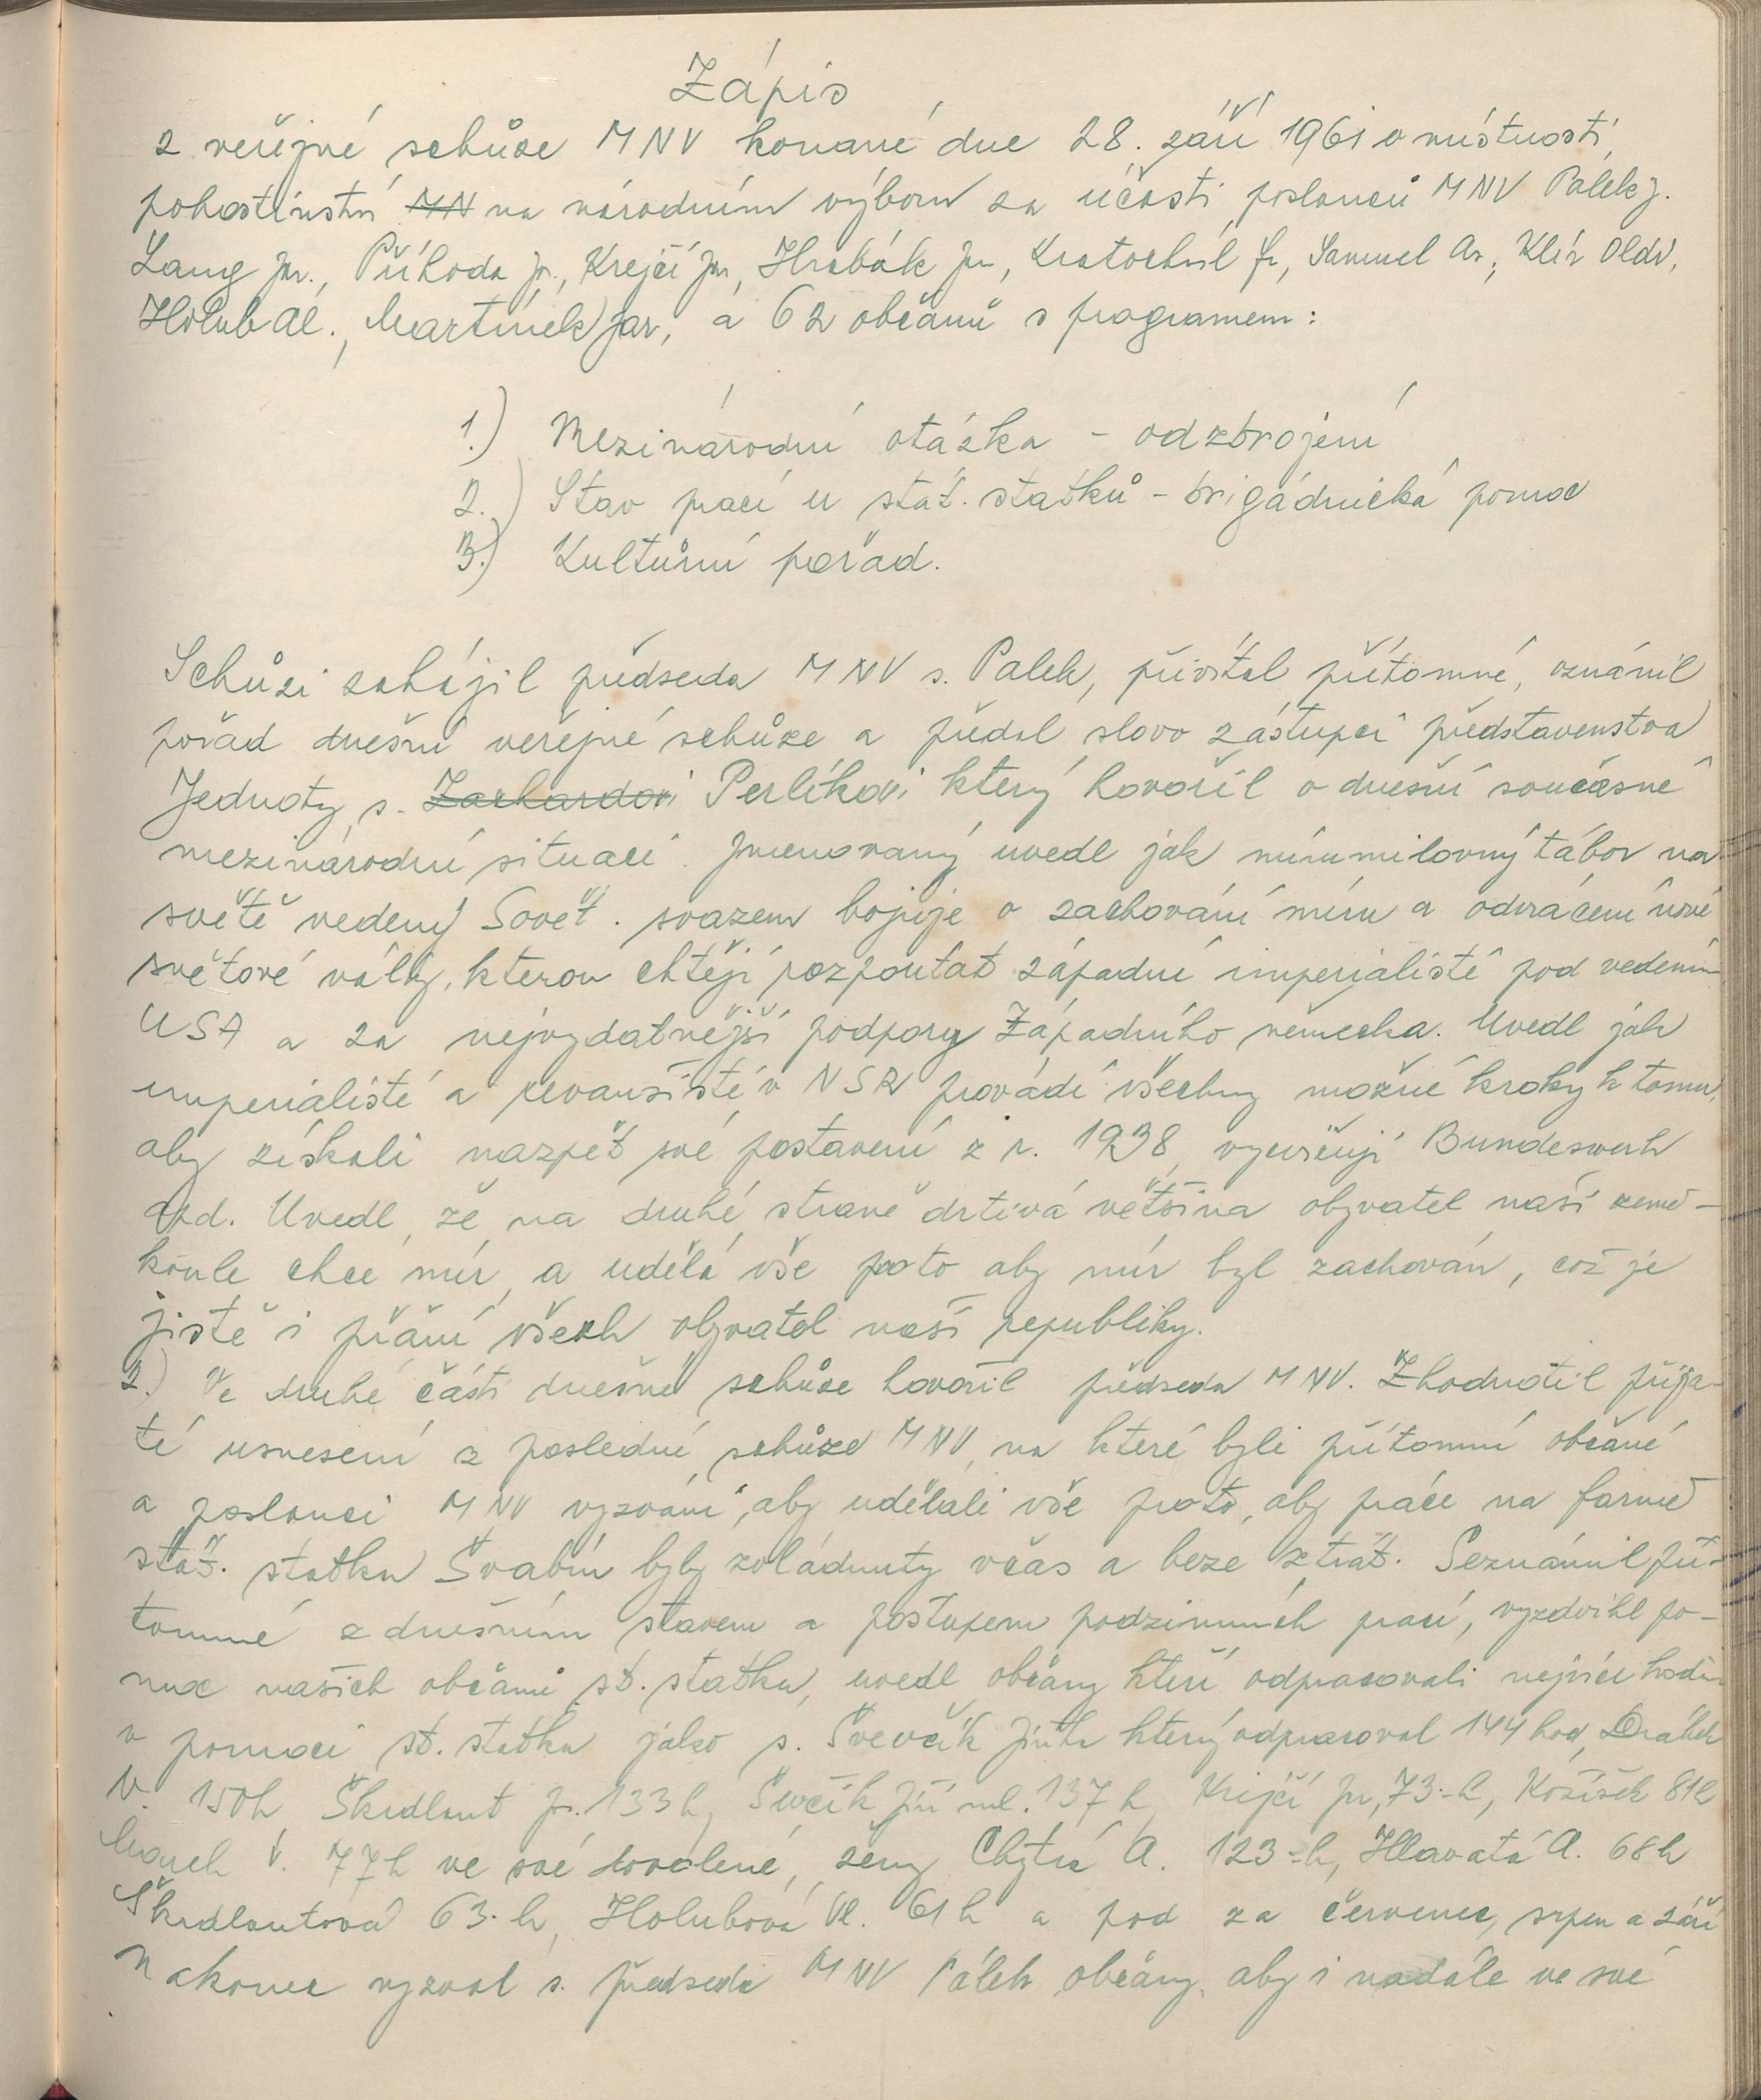 Zápis
z veřejné schůze MNV konané dne 28. září 1961 v místnosti
pohostinství MN na národním výboru za účasti poslanců MNV Palek J.
Lang Jar., Příhoda Jr., Krejčí Jar, Hrabák Jar, Kratochvíl Fr, Sammel Ar., Klír Oldř,
Holub Al., Martínek Jar, a 62 občanů s programem:
1.) Mezinárodní otázka - odzbrojení
2.) Stav prací u stát. statků - brigádnická pomoc
3.) Kulturní pořad.
Schůzi zahájil předseda MNV s. Palek, přivítal přítomné, oznámil
pořad dnešní veřejné schůze a předal slovo zástupci představenstva
Jednoty s. Perlíkovi který hovořil o dnešní současné
mezinárodní situaci. Jmenovaný uvedl jak mírumilovný tábor na
světě vedený Sovět. svazem bojuje o zachování míru a odvrácení nové
světové války, kterou chtějí rozpoutat západní imperialisté pod vedením
USA a za nejvydatnější podpory Západního německa. Uvedl jak
imperialisté a revanšisté v NSR provádí všechny možné kroky k tomu,
aby získali nazpět své postavení z r. 1938, vycvičují Bundeswerh
atd. Uvedl, že na druhé straně drtivá většina obyvatel naší země-
koule chce mír, a udělá vše proto aby mír byl zachován, což je
jistě i přání všech obyvatel naší republiky.
2.) Ve druhé části dnešní schůze hovořil předseda MNV. Zhodnotil přija-
té usnesení z poslední schůze MNV, na které byli přítomní občané
a poslanci MNV vyzváni, aby udělali vše proto, aby práce na farmě
stát. statku Švabín byly zvládnuty včas a beze ztrát. Seznámil pří-
tomné z dnešním stavem a postupem podzimních prací, vyzdvihl po-
moc našich občanů st. statku, uvedl občany kteří odpracovali nejvíce hodin
v pomoci st. statku jako s. který odpracoval 144 hod, Drábek
V. 150h, Škrdlant Jr. 133 h, Švecík Jiří ml. 137 h, Krejčí Jar, 73-h, Kožíšek 81h
March V. 77h ve své dovolené, ženy Chytrá A. 123-h, Hlavatá A. 68h
Škrdlantová 63-h, Holubová Vl. 61 h a pod za červenec, srpen a září
Nakonec vyzval s. předseda MNV Pálek občany, aby i nadále ve své